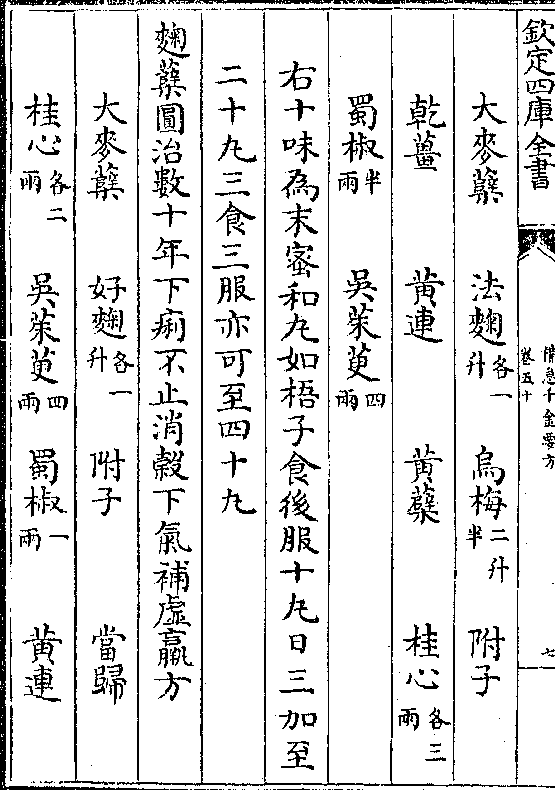 欽定四庫全書
備急千金要方
卷五十
七
大麥蘖 法麴各一升 烏梅二升半 附子
乾薑 黄連 黄蘗 桂心各三兩
蜀椒半兩 吳茱萸四兩
右十味為末蜜和丸如梧子食後服十丸日三加至
二十丸三食三服亦可至四十丸
麴蘖圓治數十年下痢不止消榖下氣補虛羸方
大麥蘖 好麴各一升 附子 當歸
桂心各二兩 吳茱萸四兩 蜀椒一兩 黄連